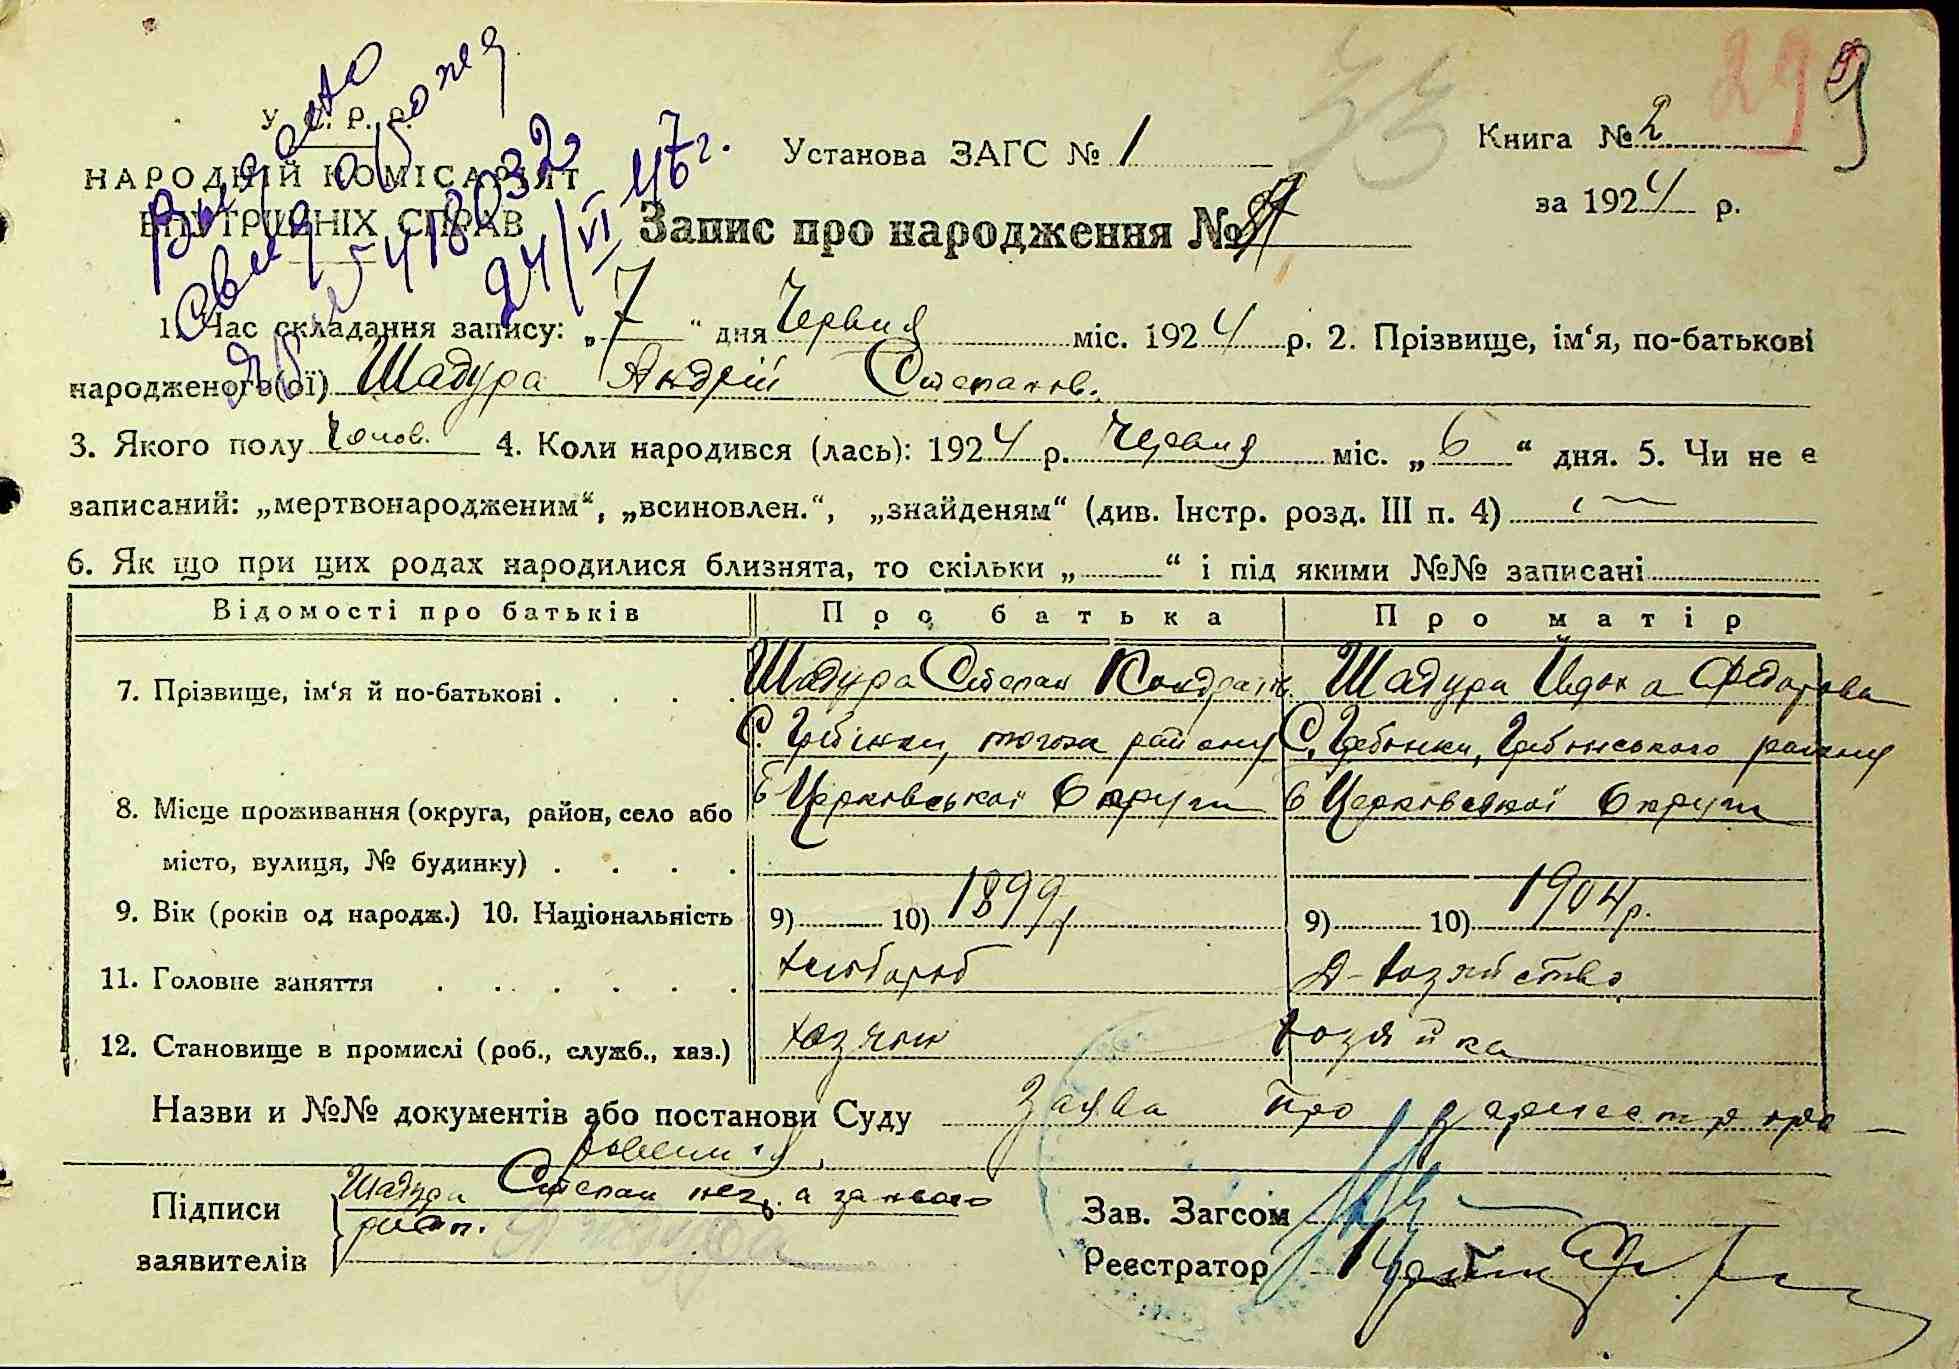 33
29
9
У. С. Р. Р.
НАРОДНІЙ КОМІСАРІЯТ
ВНУТРІШНІХ СПРАВ
Выдано
Свид о рожд
418032
24/VI 46 г.
Установа ЗАГС № 1
Книга № 2
за 1924 р.
Запис про народження №
1. Час складання запису: „7“ дня Червня міс. 1924 р. 2. Прізвище, ім‘я, по-батькові
народженого(ої) Шадура Андрій Степанов.
3. Якого полу Чолов. 4. Коли народився (лась): 1924 р. Червня міс. „6“ дня. 5. Чи не є
записаний: „мертвонародженим“, „всиновлен.“, „знайденям“ (див. Інстр. розд. III п. 4) —
6. Як що при цих родах народилися близнята, то скільки „ “ і під якими №№ записані
Відомості про батьків Про батька Про матір
7. Прізвище, ім‘я й по-батькові . . . . Шадура Степан Кондратів. Шадура Федорова
С. Гребінки, тогож району С. Гребінки, Гребінківського району
8. Місце проживання (округа, район, село або Б Церковської Округи Б Церковської Округи
місто, вулиця, № будинку) . . . .
9. Вік (років од народж.) 10. Національність 9) 10) 1899 9) 10) 1904 р.
11. Головне заняття . . . . . . хлібороб Д-хозяйство
12. Становище в промислі (роб., служб., хаз.) хозяин хозяйка
Назви и №№ документів або постанови Суду Заява про
Підписи Шадура Степан а за нього
заявителів розп.
Зав. Загсом
Реєстратор